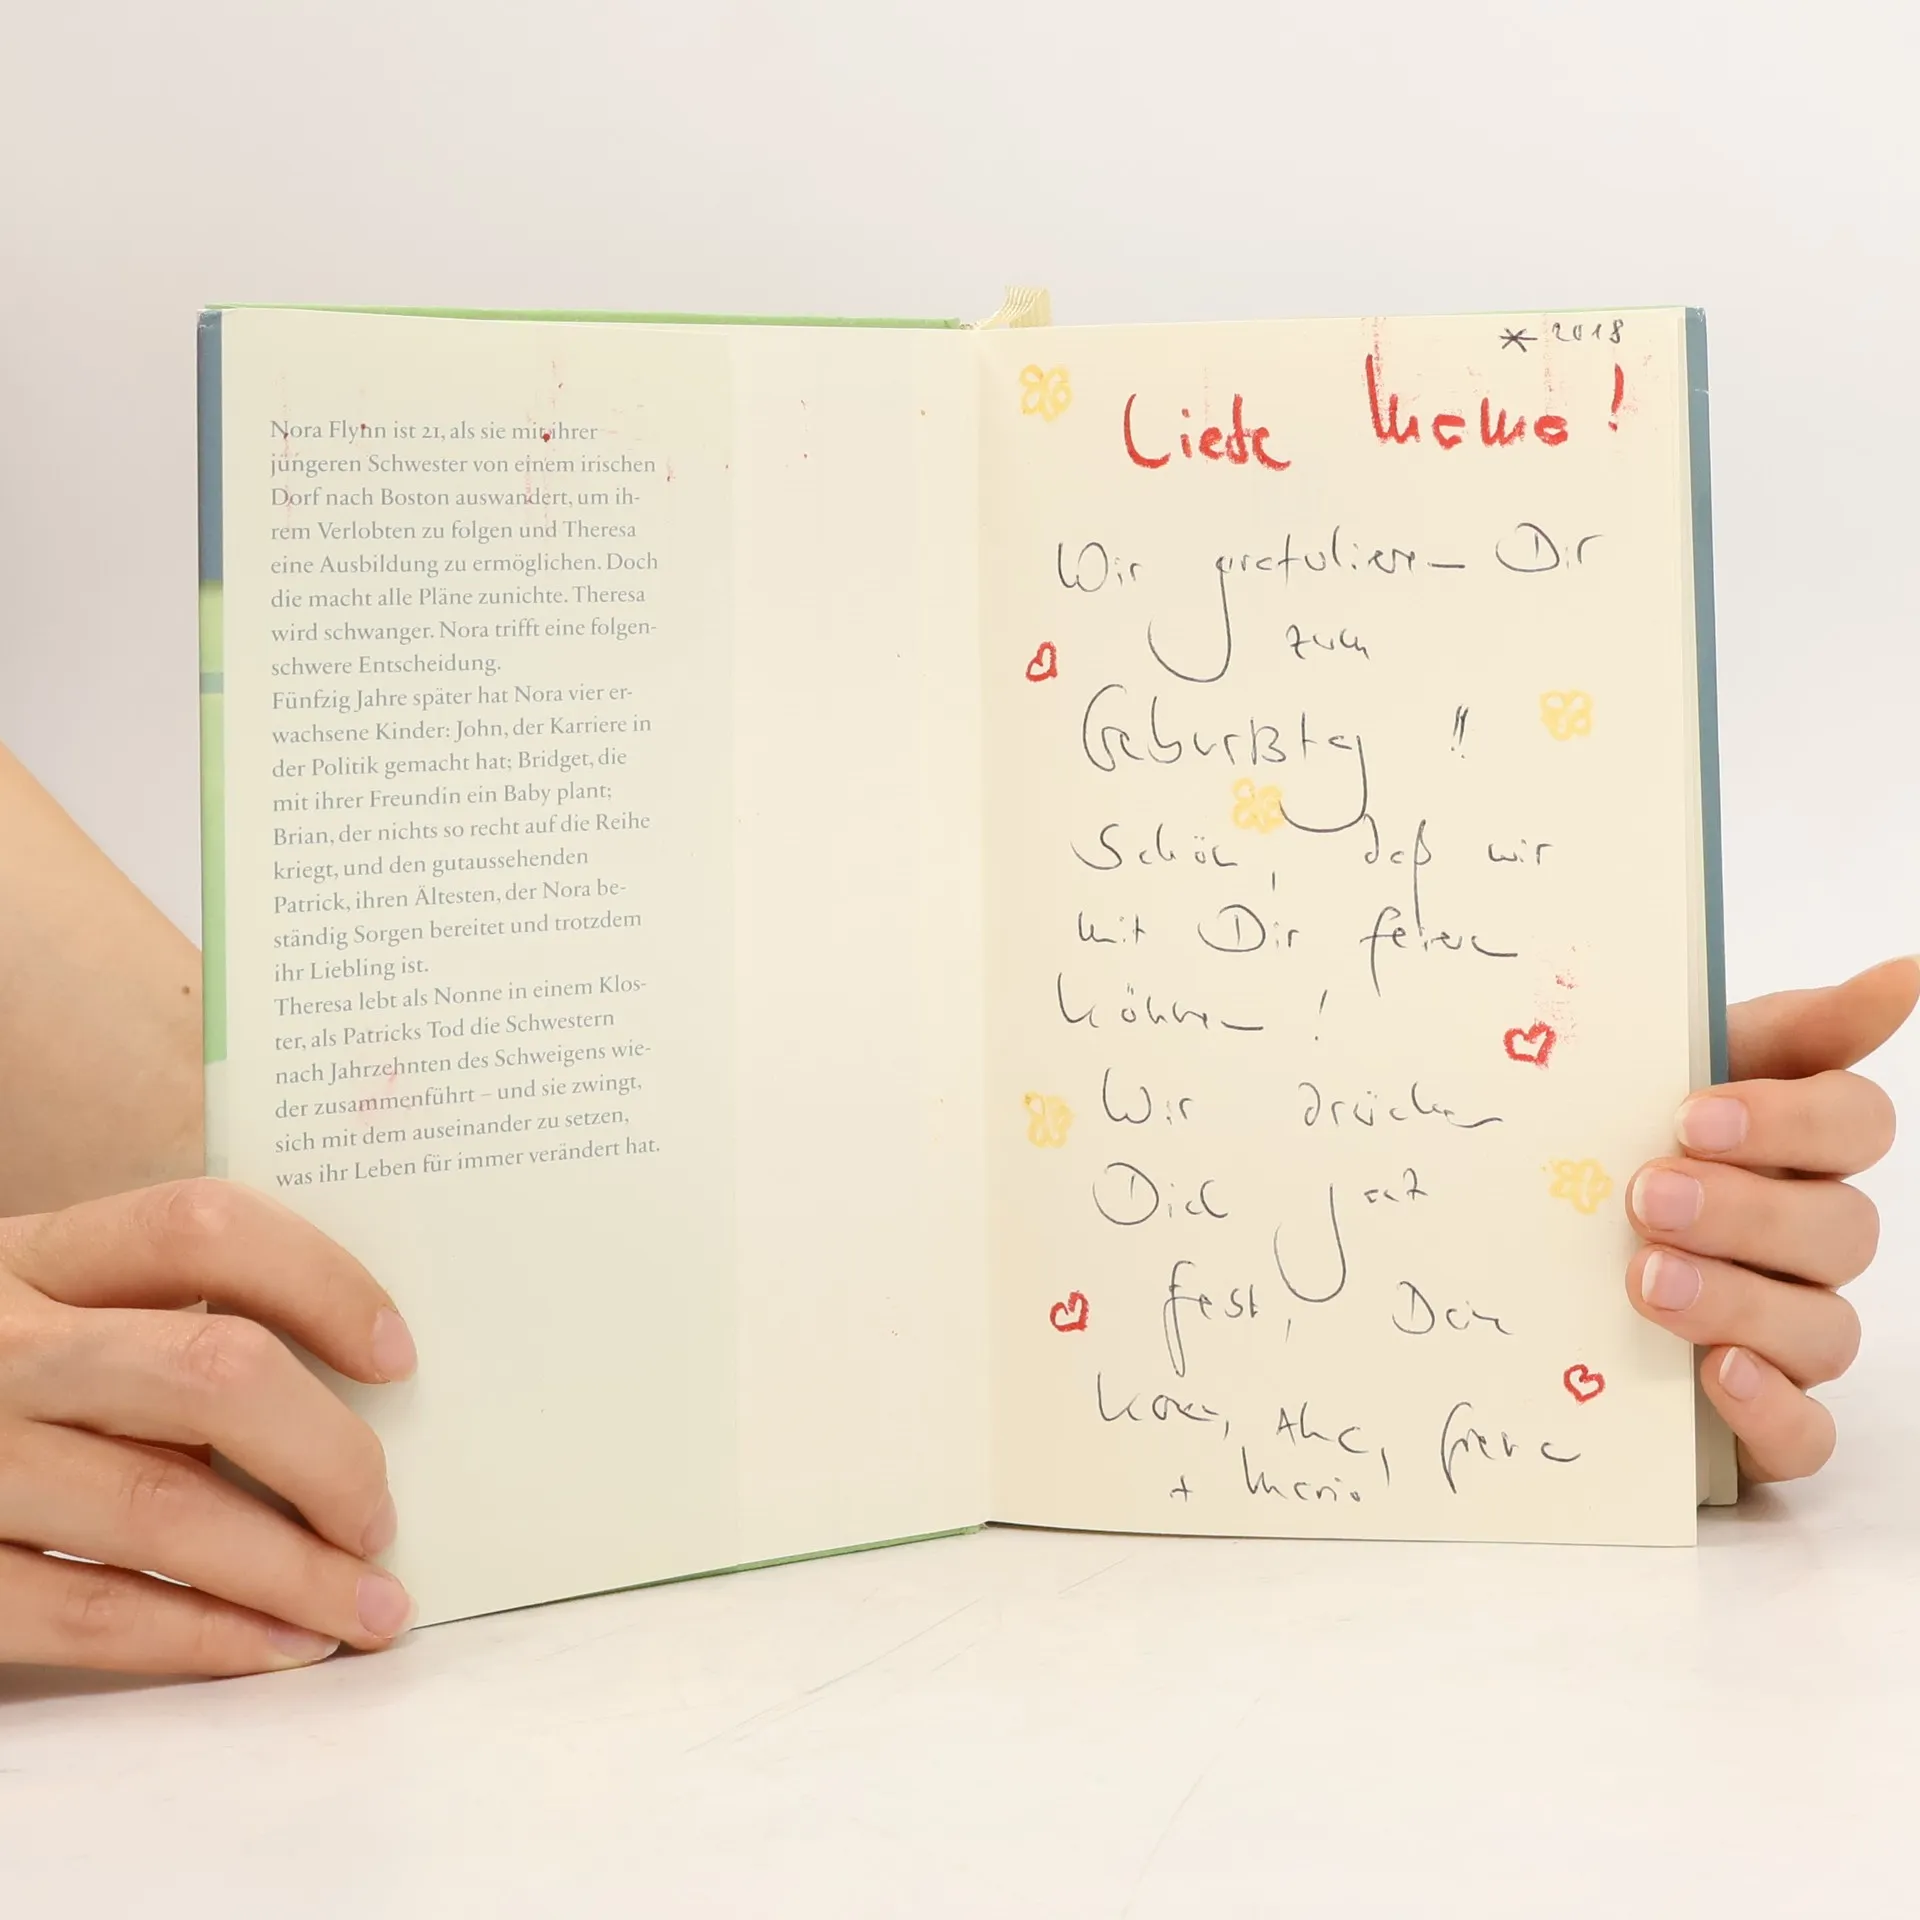 Nora Flynn ist 21, als sie mit ihrer
jüngeren Schwester von einem irischen
Dorf nach Boston auswandert, um ih-
rem Verlobten zu folgen und Theresa
eine Ausbildung zu ermöglichen. Doch
die macht alle Pläne zunichte. Theresa
wird schwanger. Nora trifft eine folgen-
schwere Entscheidung.
Fünfzig Jahre später hat Nora vier er-
wachsene Kinder: John, der Karriere in
der Politik gemacht hat; Bridget, die
mit ihrer Freundin ein Baby plant;
Brian, der nichts so recht auf die Reihe
kriegt, und den gutaussehenden
Patrick, ihren Ältesten, der Nora be-
ständig Sorgen bereitet und trotzdem
ihr Liebling ist.
Theresa lebt als Nonne in einem Klos-
ter, als Patricks Tod die Schwestern
nach Jahrzehnten des Schweigens wie-
der zusammenführt – und sie zwingt,
sich mit dem auseinander zu setzen,
was ihr Leben für immer verändert hat.
* 2018
Liebe Mama!
Wir gratulieren Dir
zum
Geburtstag !!
Schön, daß wir
mit Dir feiern
können!
Wir drücken
Dich ganz
fest,
+ Mario